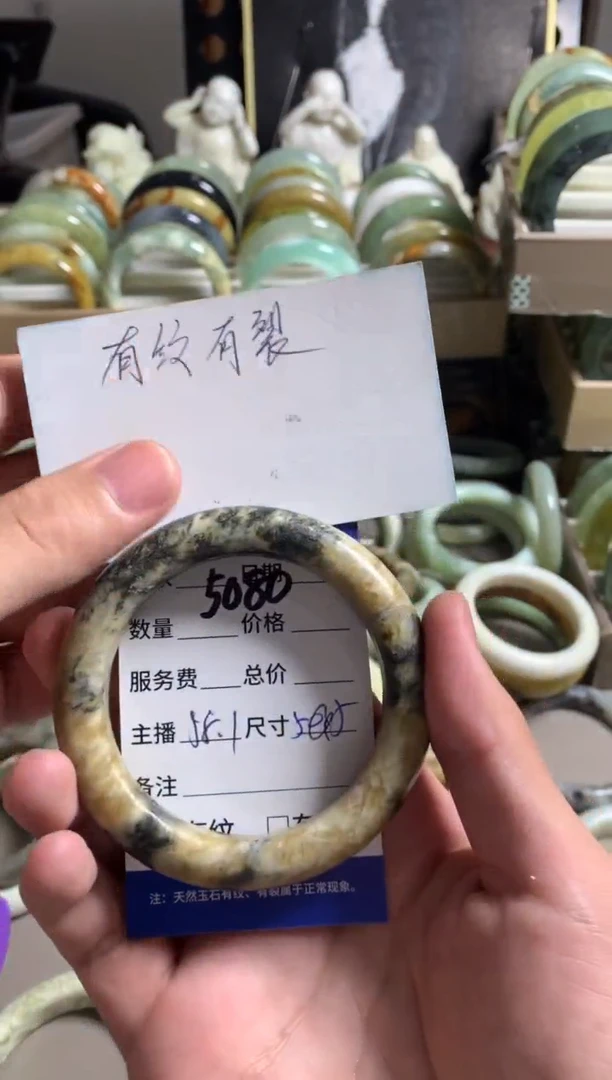 有纹有裂
日期
5080
数量 价格
服务费 总价
主播 55.1 尺寸
备注
有纹
注：天然玉石有纹、有裂属于正常现象。